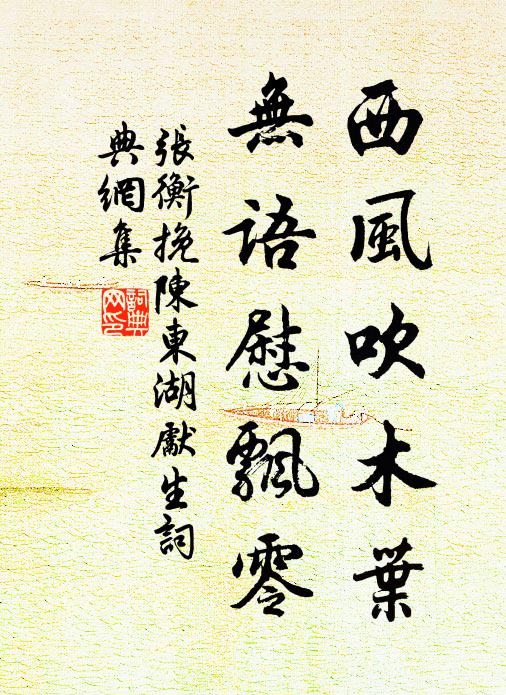 西風吹木葉
無語慰飄零
張衡挽陳東湖獻生詞
典網集
詞典网印